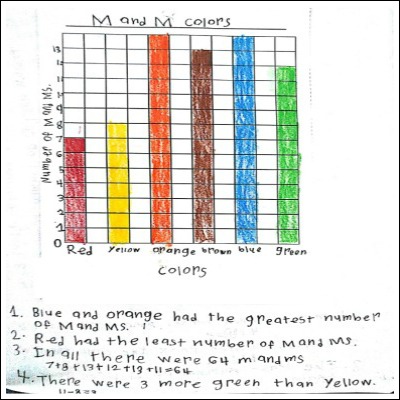 M and M colors
Number of M and Ms.
13
12
11
10
9
8
7
6
5
4
3
2
1
0
Red Yellow orange brown blue green
colors
1. Blue and orange had the greatest number
of M and Ms.
2. Red had the least number of M and Ms.
3. In all there were 64 m and ms
7+8+13+12+13+11=64
4. There were 3 more green than Yellow.
11-8=3